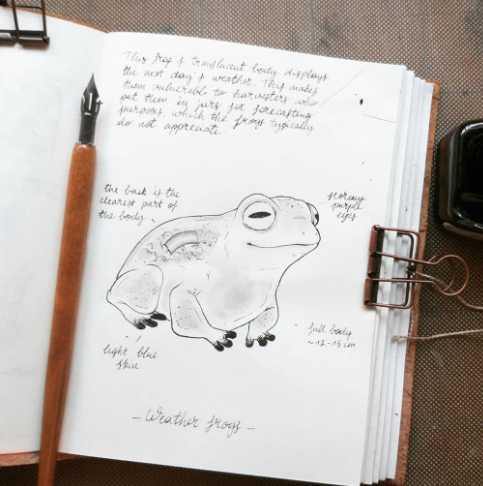 This frog's translucent body displays
the next day's weather. This makes
them vulnerable to harvesters who
put them in jars for forecasting
purposes, which the frogs typically
do not appreciate.
the back is the
clearest part of
the body
glowing
purple
eyes
full body
~ 12 - 15 cm
light blue
skin
- Weather frogs -